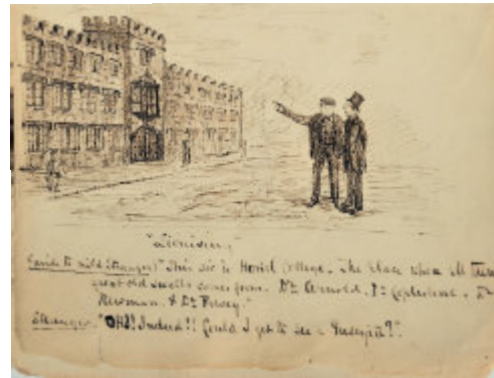 "Lionising"
Guide to mild Stranger) "This sir is Horiel College. The place where all these
great old swells comes from. Dr Arnold. Dr Copleston. Dr
Newman. & Dr Pusey."
Stranger. "OH!! Indeed!! Could I get to see a